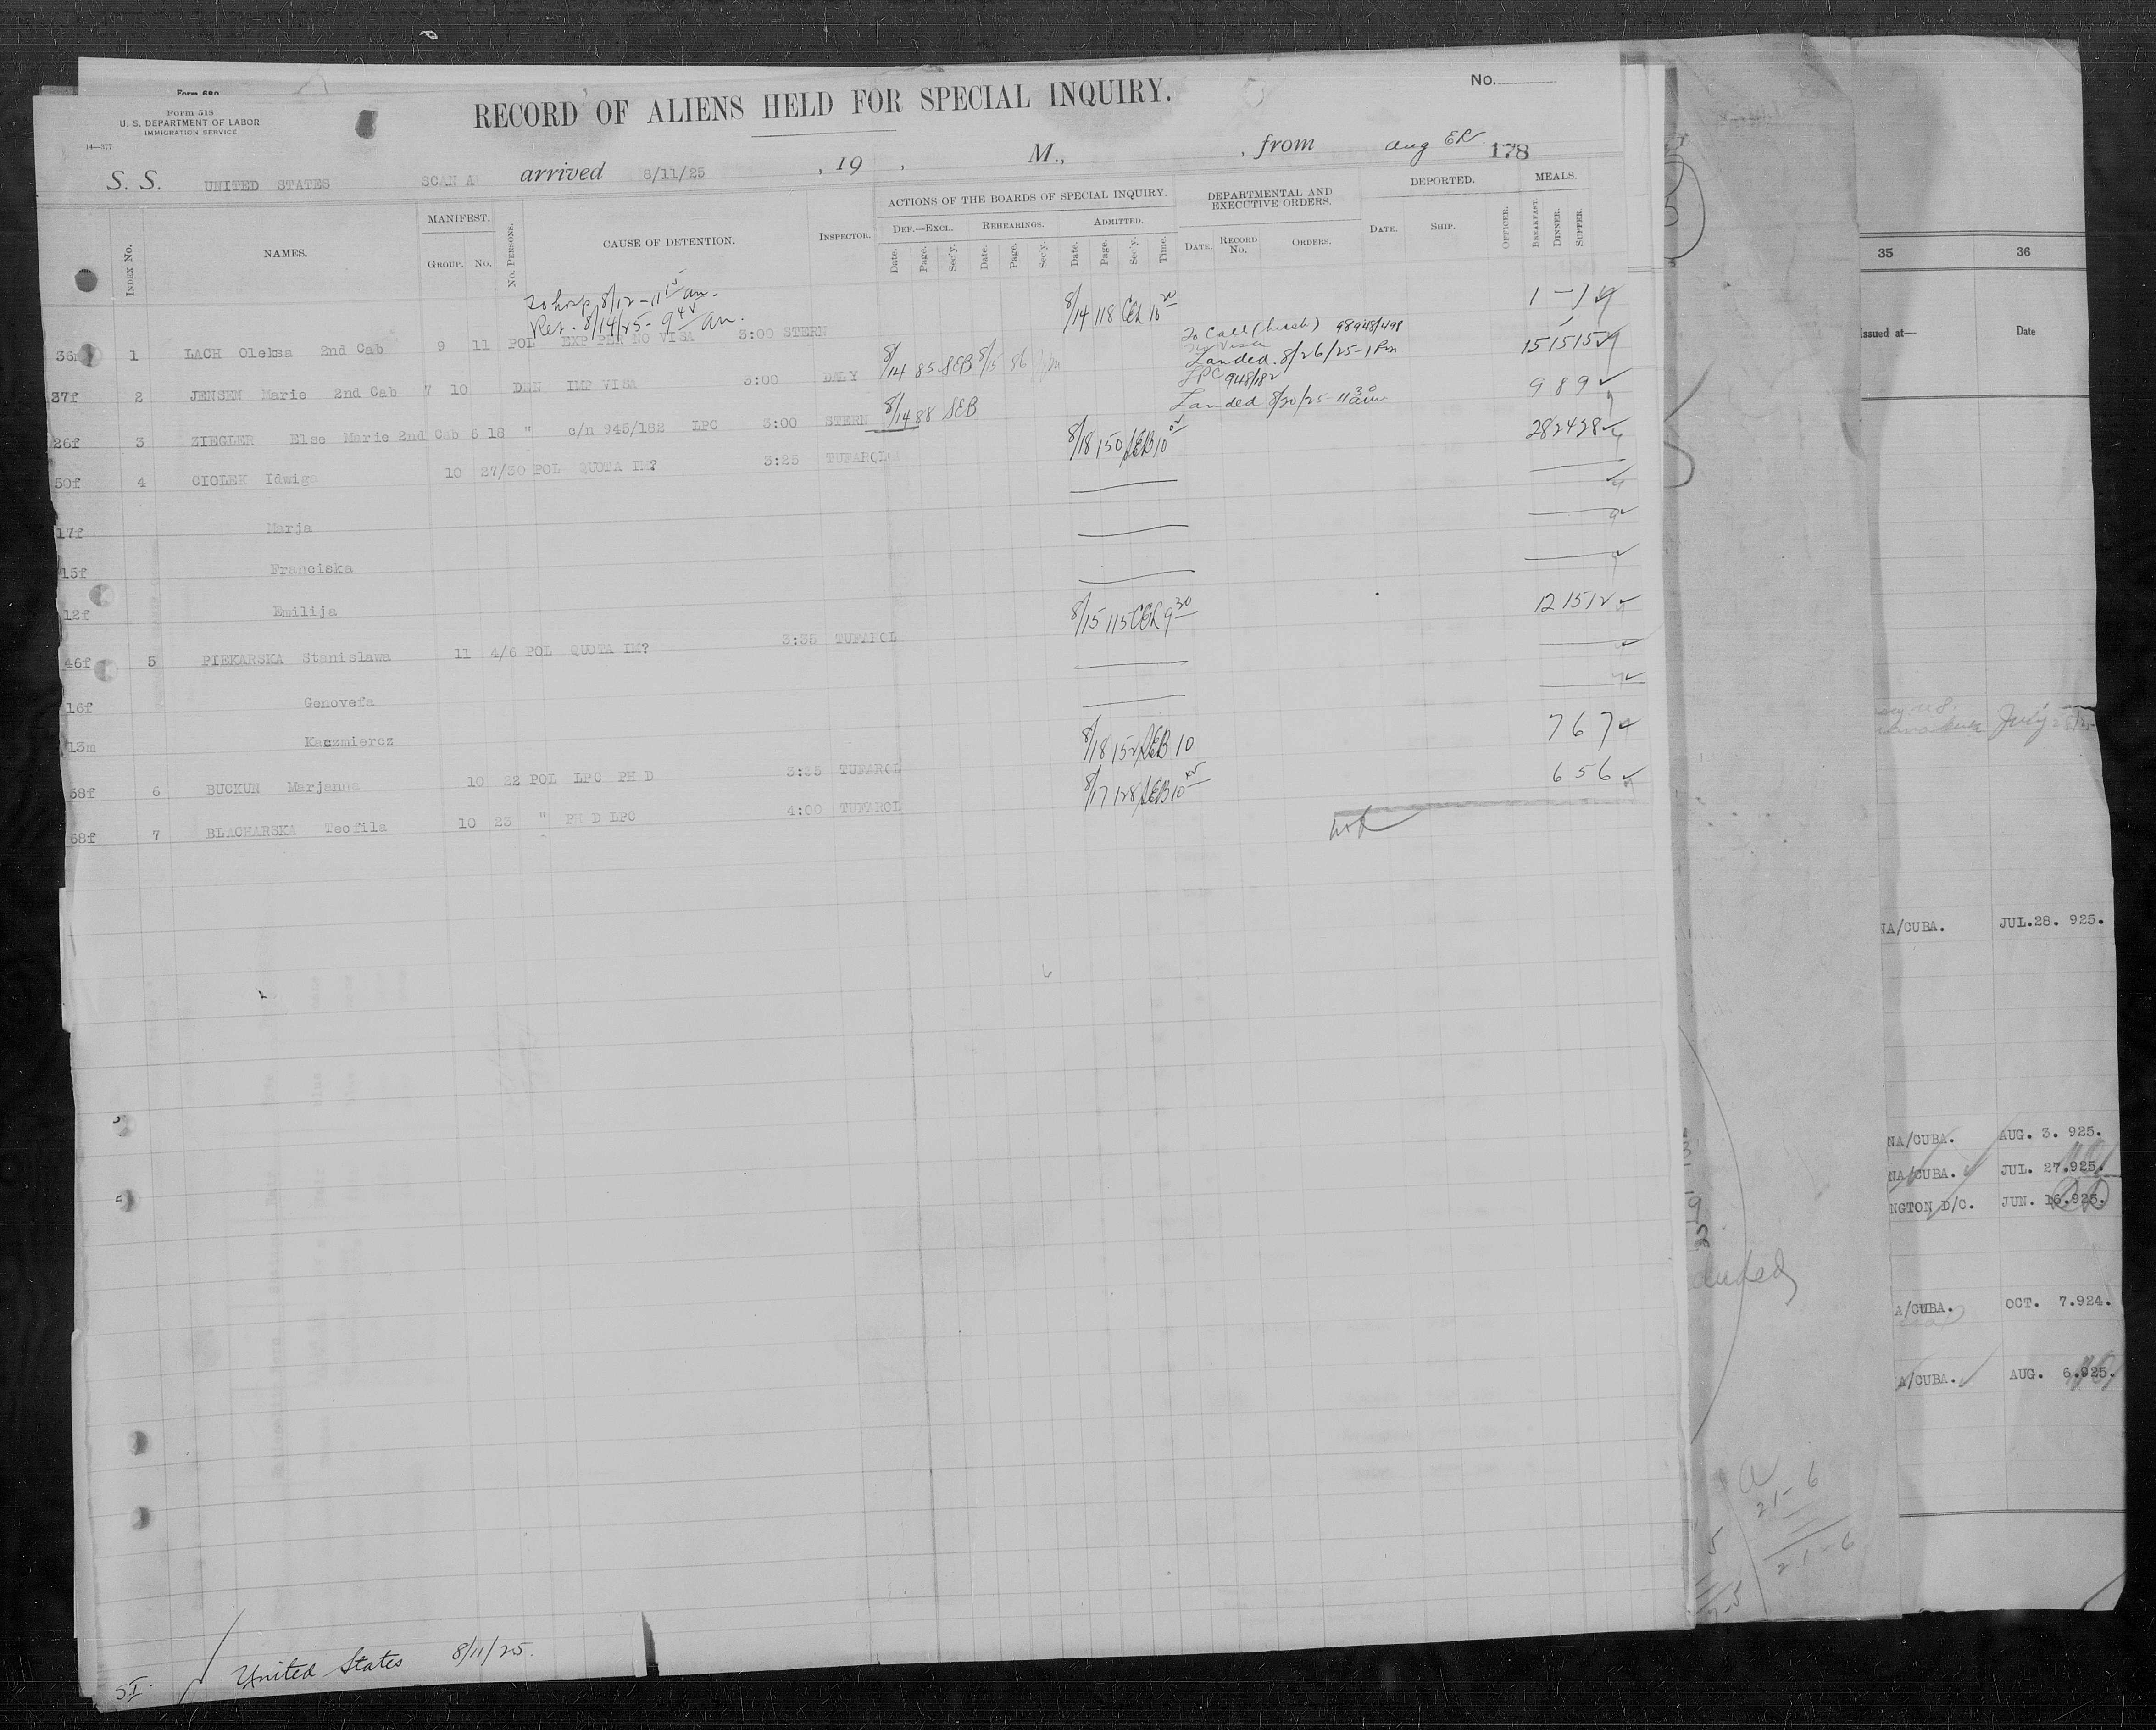 Form 689
Form 518
U. S. DEPARTMENT OF LABOR
IMMIGRATION SERVICE
14—377
RECORD OF ALIENS HELD FOR SPECIAL INQUIRY.
No.
S. S. UNITED STATES SCAN A arrived 8/11/25 , 19 , M., , from Aug ER 178
INDEX No.
NAMES.
MANIFEST.
GROUP. No.
No. PERSONS.
CAUSE OF DETENTION.
INSPECTOR.
ACTIONS OF THE BOARDS OF SPECIAL INQUIRY.
DEF.—EXCL. REHEARINGS. ADMITTED.
Date. Page. Sec'y. Date. Page. Sec'y. Date. Page. Sec'y. Time.
DEPARTMENTAL AND
EXECUTIVE ORDERS.
DATE. RECORD No. ORDERS.
DEPORTED.
DATE. SHIP. OFFICER.
MEALS.
BREAKFAST. DINNER. SUPPER.
To hosp 8/12 - 11 15 am.
Ret. 8/14/25 - 9 45 am.
36m 1 LACH Oleksa 2nd Cab 9 11 POL EXP PER NO VISA 3:00 STERN 8/14 118 10 20 1 - 1
37f 2 JENSEN Marie 2nd Cab 7 10 DEN IMP VISA 3:00 DALY 8/14 85 SEB 8/15 86 98948/498
Landed 8/26/25 - 1 Pm 15 15 15
26f 3 ZIEGLER Else Marie 2nd Cab 6 18 " c/n 945/182 LPC 3:00 STERN 8/14 88 SEB LPC 948/182
Landed 8/20/25 - 11 30 am 9 8 9
50f 4 CIOLEK Idwiga 10 27/30 POL QUOTA IM? 3:25 TUFAROL 8/18 150 SEB 10 28 24 28
17f Marja
15f Franciska
12f Emilija
46f 5 PIEKARSKA Stanislawa 11 4/6 POL QUOTA IM? 3:35 TUFAROL 8/15 115 9 30 12 15 12
16f Genovefa
13m Kaczmiercz
58f 6 BUCKUN Marjanna 10 22 POL LPC PH D 3:35 TUFAROL 8/18 152 SEB 10 7 6 7
68f 7 BLACHARSKA Teofila 10 23 " PH D LPC 4:00 TUFAROL 8/17 128 SEB 10 45 6 5 6
S.I. United States 8/11/25.
35 36
Issued at— Date
July
NA/CUBA. JUL.28. 925.
NA/CUBA. AUG. 3. 925.
NA/CUBA. JUL. 27.925.
NGTON D/C. JUN. 16.925.
A/CUBA. OCT. 7.924.
A/CUBA. AUG. 6.925.
21-6
21-6